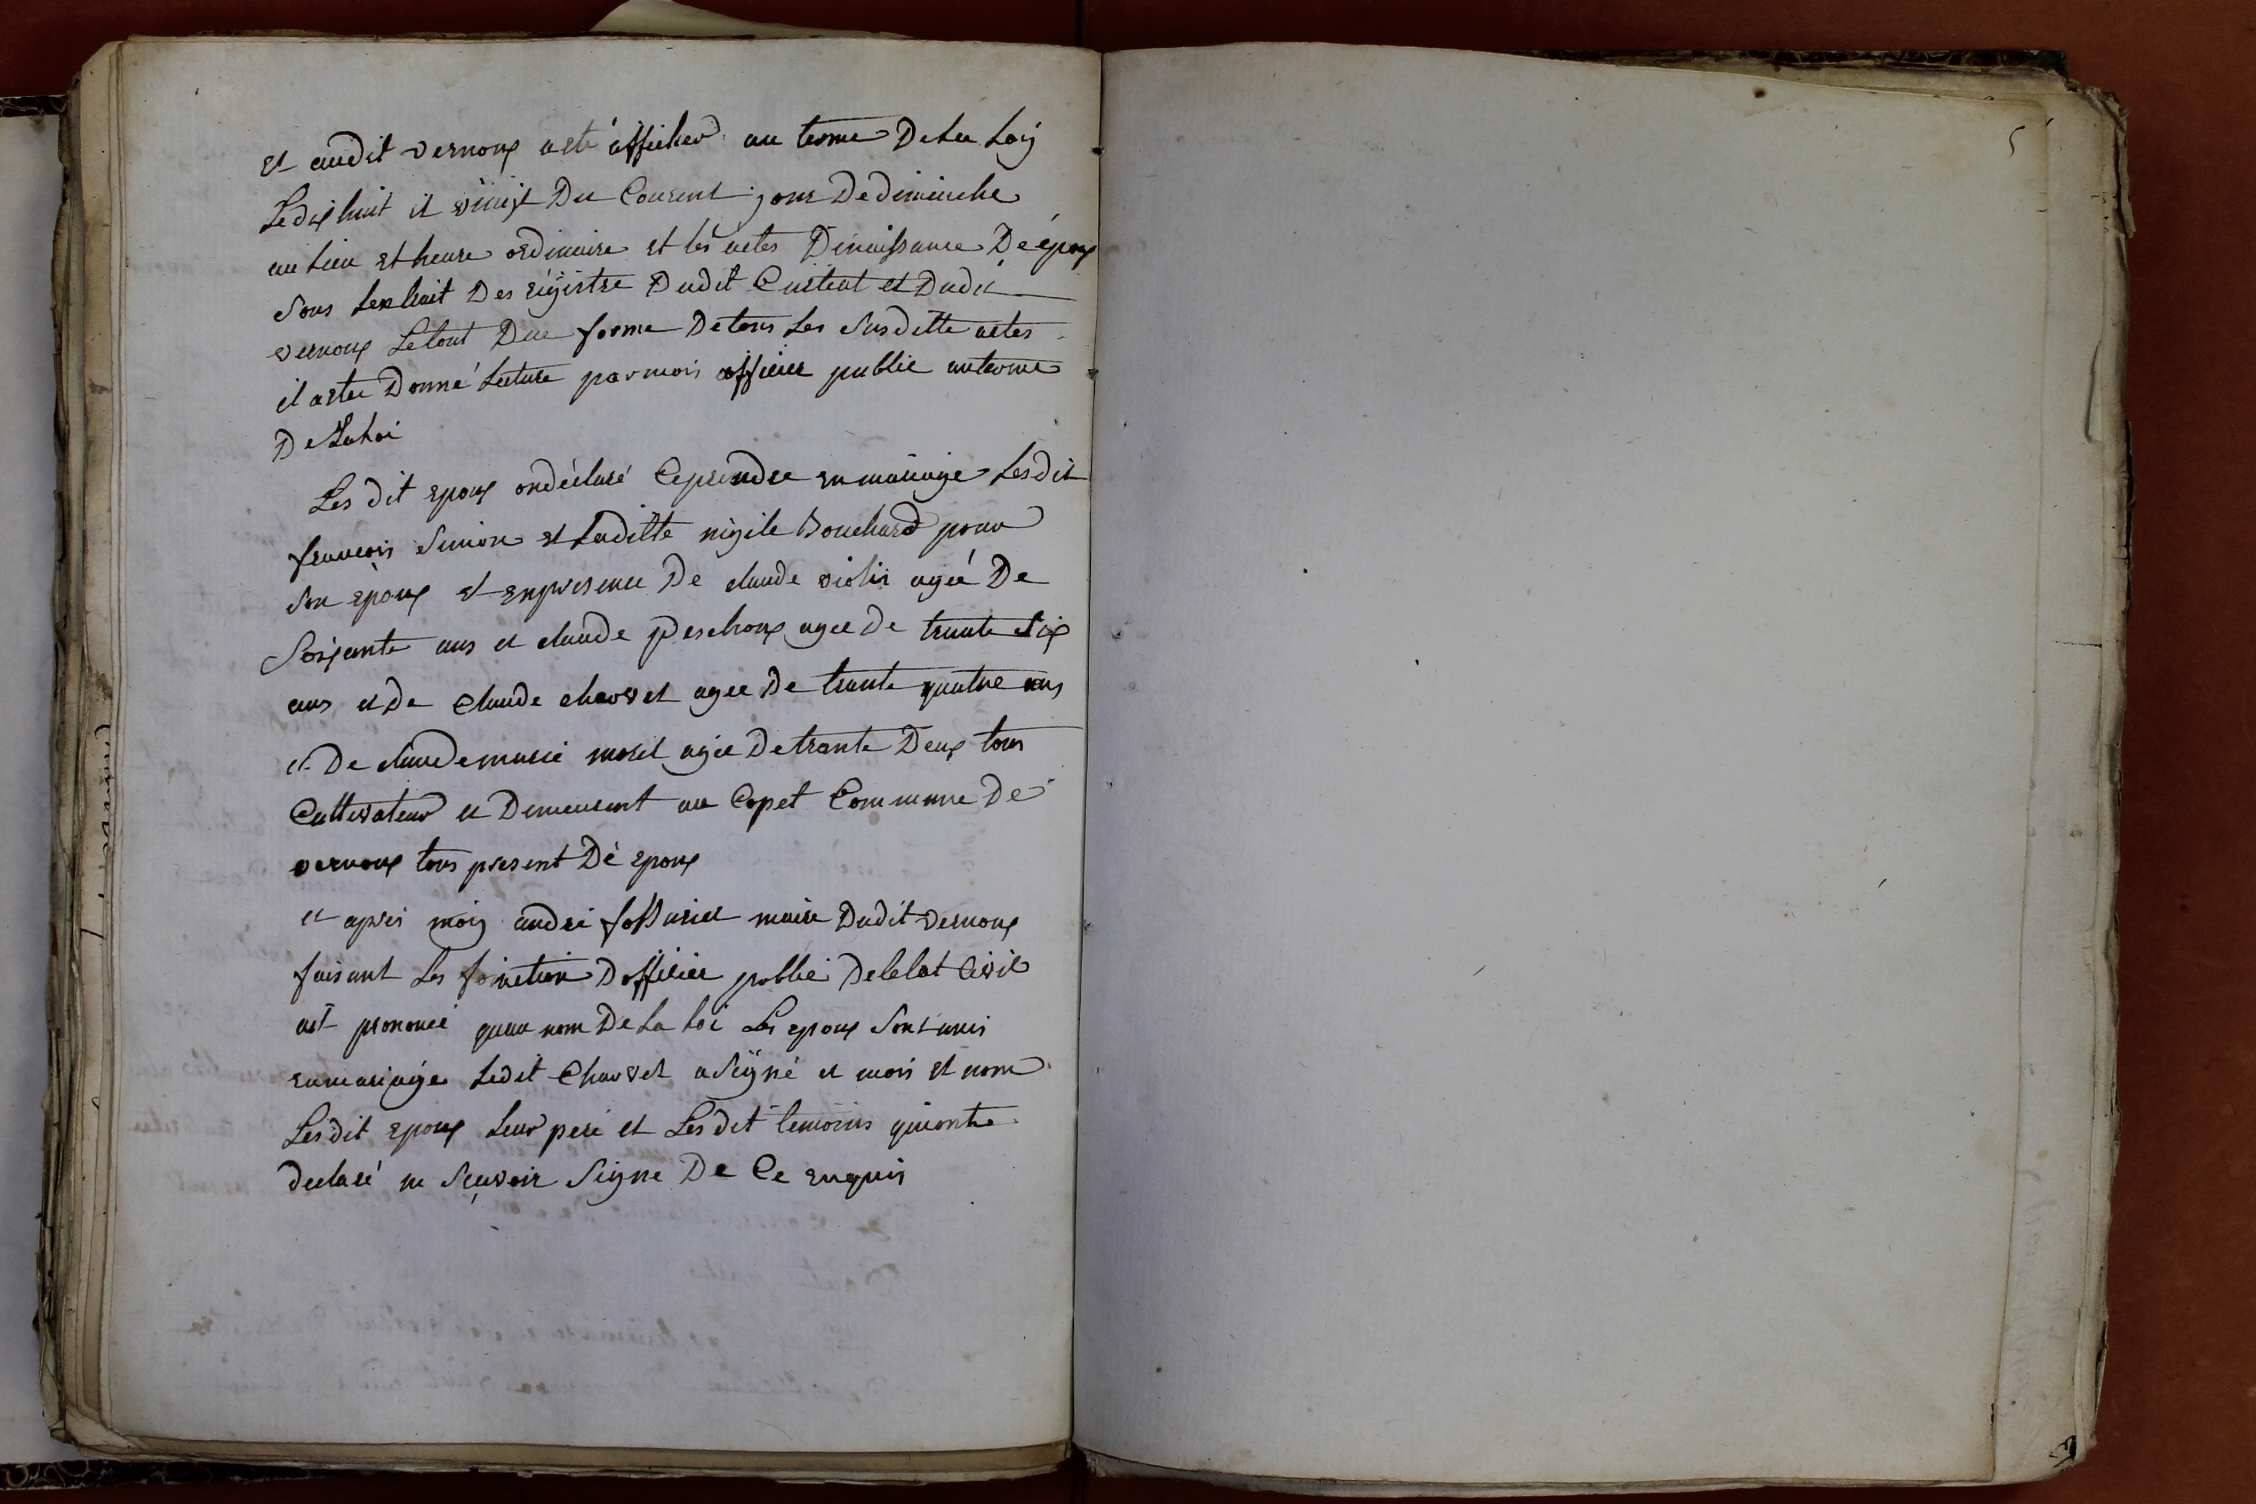 et audit vernoux aeté afficher au terme De La Loÿ
Le dix huit et vingt Du Courent jour De diminche
au Lieu et heure ordinaire et les actes Denaissance De époux
Sous Lextrait Des régistre Dudit Curteat et Dudit
vernoux Letout Due forme Detous Les Susditte actes
il aetee Donné Lecture parmois officier public auterme
De La Loi
Les dit epoux ondéclaré Ceprendre en mariage Lesdit
francois Simion et Laditte nigile Bouchard pour
Son epoux et enpresence De claude violis agée De
Soixante ans et claude peschoux agee De trante Six
ans et De Claude chavvet agee De trante quatre ans
et De claudemarie morel agée De trante Deux tous
Cultivateur et Demeurent au Copet Commune De
vernoux tous present Dé epoux
et après moÿ andré fossuriet maire Dudit vernoux
faisant Les fonction Dofficier publié Deletat Civil
aet prononcé quau nom De La Loi Les epoux Sont unis
enmariage Ledit Chavvet aSigné et mois et nom
Lesdit epoux Leur pere et Lesdit temoins quionte
declaré ne Scavoir Signe De Ce enquis